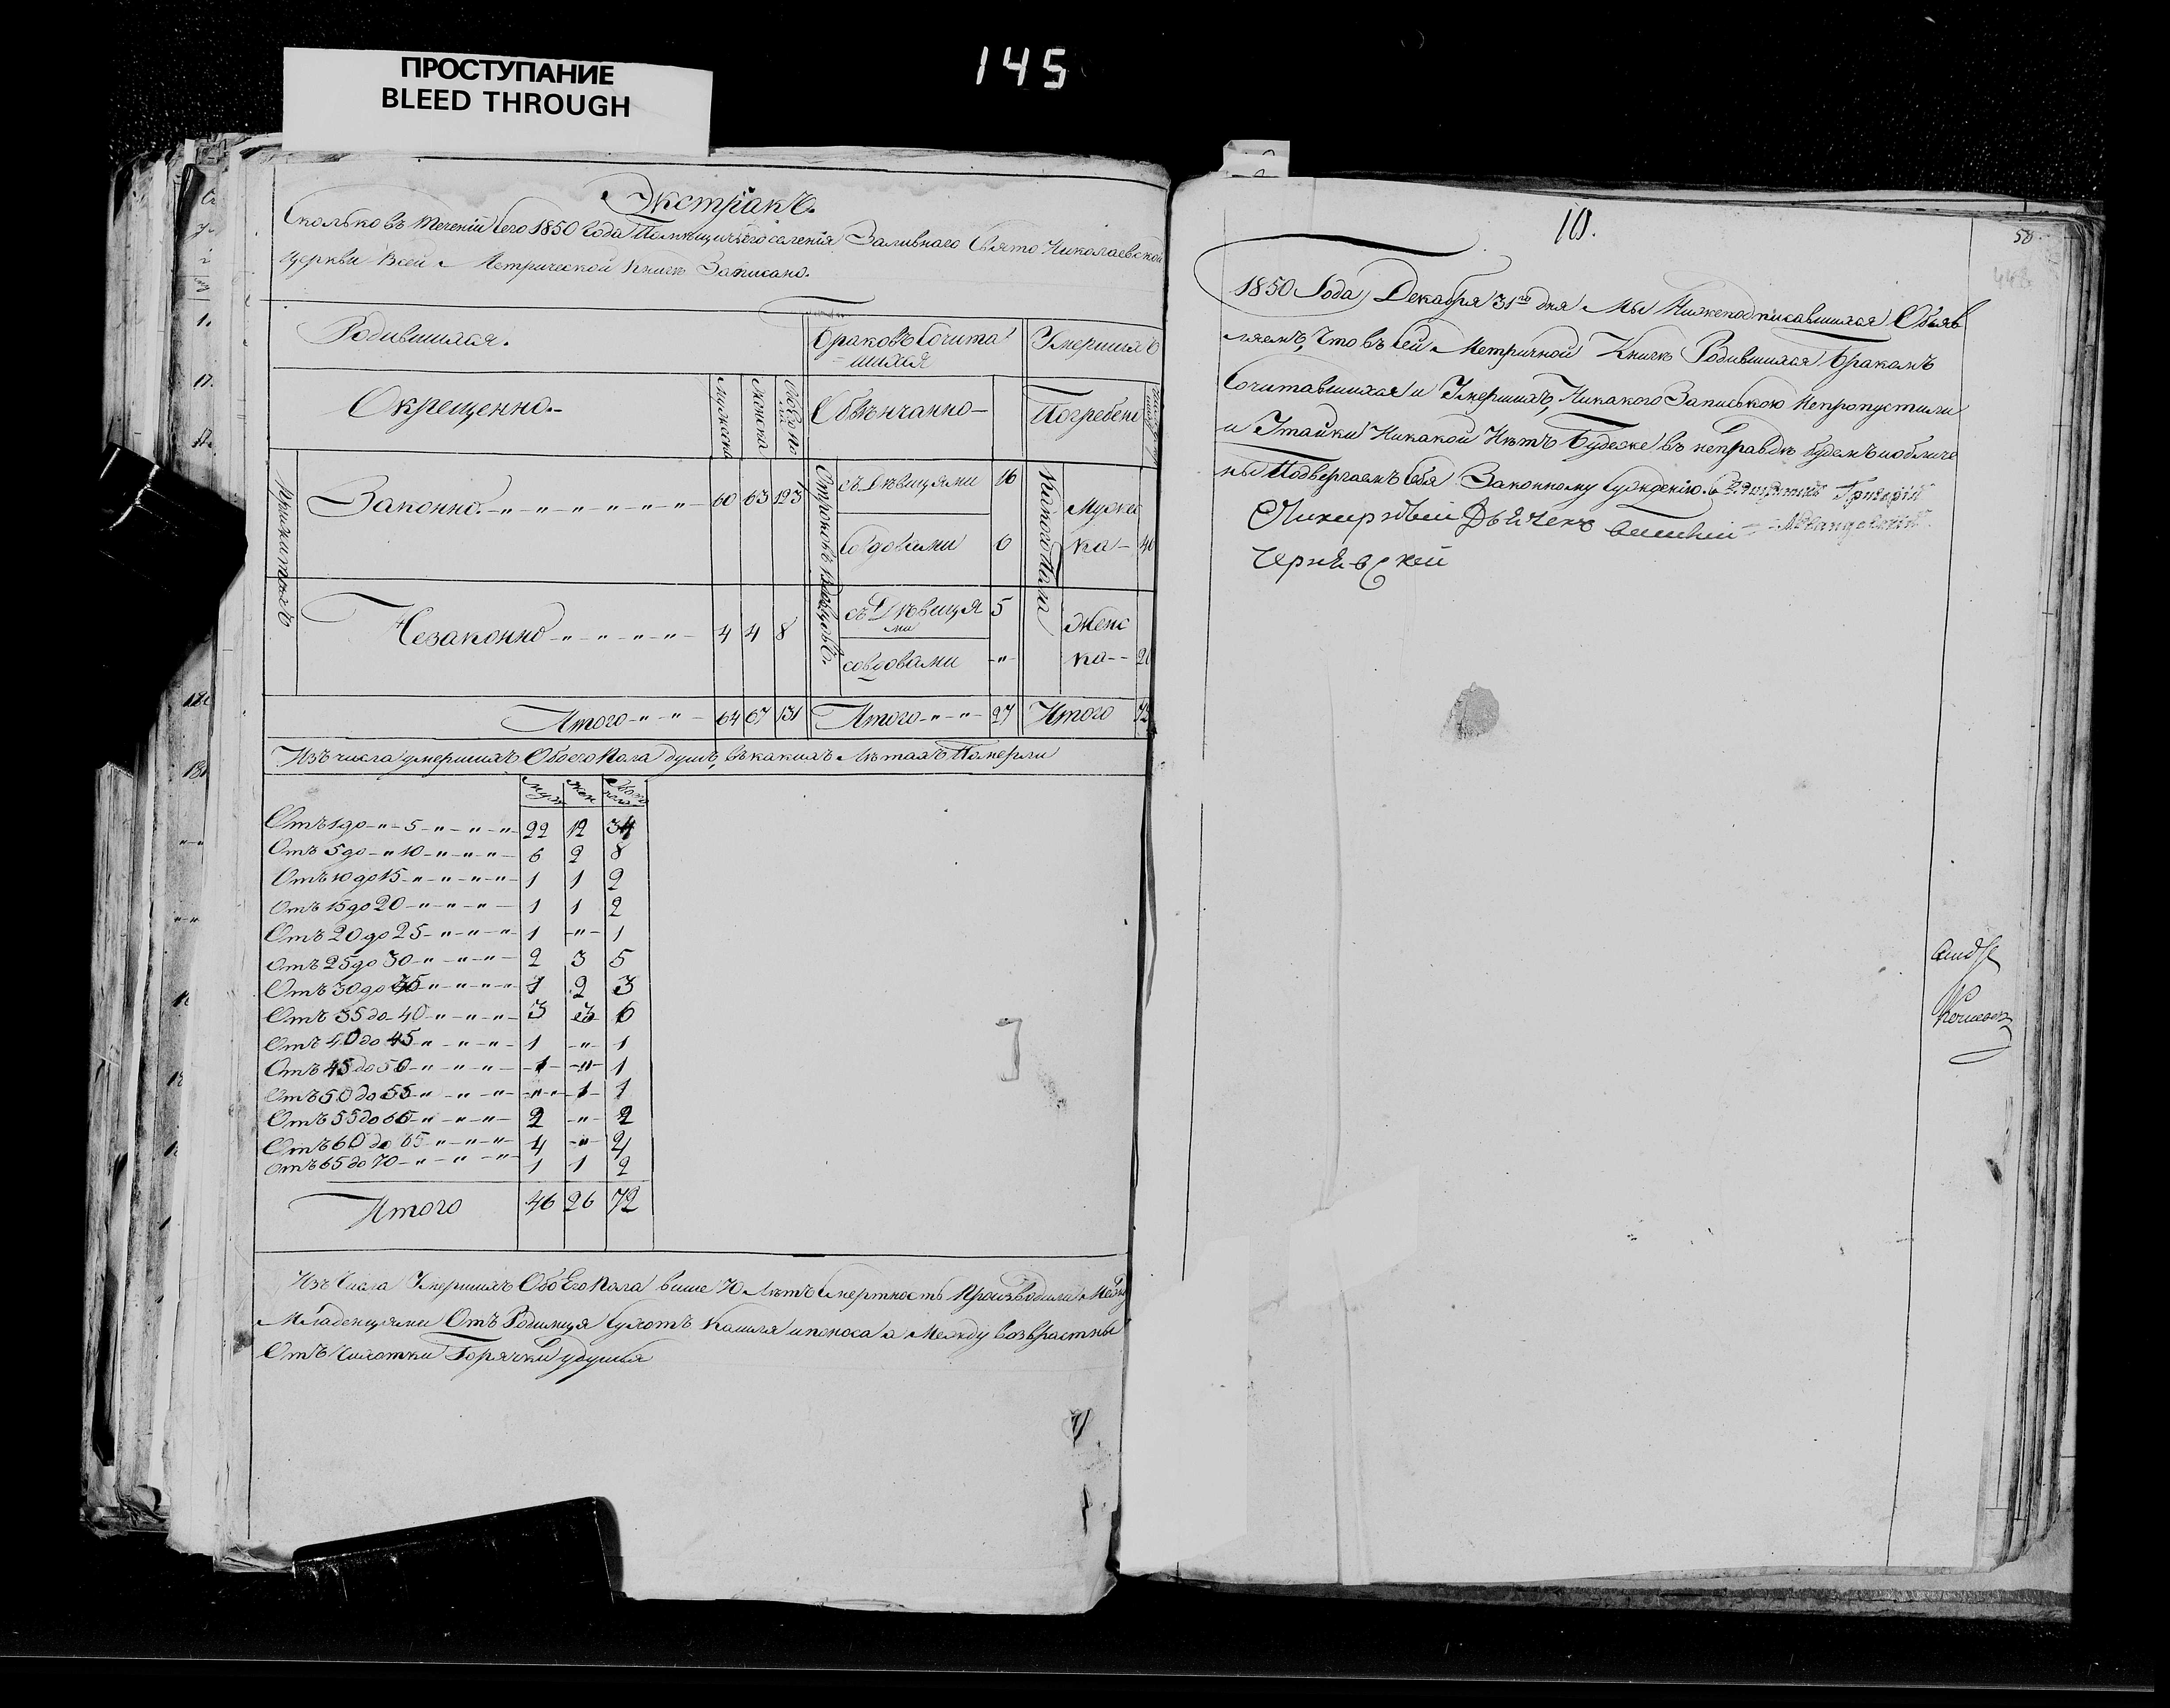 145
ПРОСТУПАНИЕ
BLEED THROUGH
Экстрактъ.
Сколько въ теченіи сего 1850 года Помѣщичьего селенія Заливнаго Свято Николаевской
церкви всей Метрической Книгѣ Записано.
Родившихся. Браковъ Сочита Умершихъ
шихся
Окрещенно.- Мужеска Женска Обоего По Обвѣнчанно- Погребен
Законно 60 63 123 съ Дѣвицами 16 Мужес
со вдовами 6 ка- 46
Незаконно 4 4 8 съ Дѣвиця 5 Женс
ми
со вдовами -"- ка-- 26
Итого 64 67 131 Итого 27 Итого 72
Изъ числа умершихъ Обоего Пола душъ, въ какихъ Лѣтахъ Померли
Муж Жен
Отъ 1 до 5 22 12 34
Отъ 5 до 10 6 2 8
Отъ 10 до 15 1 1 2
Отъ 15 до 20 1 1 2
Отъ 20 до 25 1 -"- 1
Отъ 25 до 30 2 3 5
Отъ 30 до 35 1 2 3
Отъ 35 до 40 3 3 6
Отъ 40 до 45 1 -"- 1
Отъ 45 до 50 1 -"- 1
Отъ 50 до 55 -"- 1 1
Отъ 55 до 60 2 -"- 2
Отъ 60 до 65 4 -"- 4
Отъ 65 до 70 1 1 2
Итого 46 26 72
Изъ Числа Умершихъ Обоего Пола више 70 Лѣтъ Смертность Производила Между
Младенцями Отъ Родимця Сухотъ Кашля и поноса а Между возврастны
Отъ Чихотки Горячки удушья
10.
50
1850 Года Декабря 31го дня Мы Нижеподписавшихся Объяв
ляемъ, Что въ сей Метричной Книгѣ Родившихся Бракомъ
Сочитавшихся и Умершихъ, Никакого Запискою непропустили
и Утайки Никакой Нѣтъ Будеже въ неправдѣ будемъ изобличе
ны Подвергаемъ себя Законному Суждению. Священникъ Григорій
Дьячекъ
Чернявскей